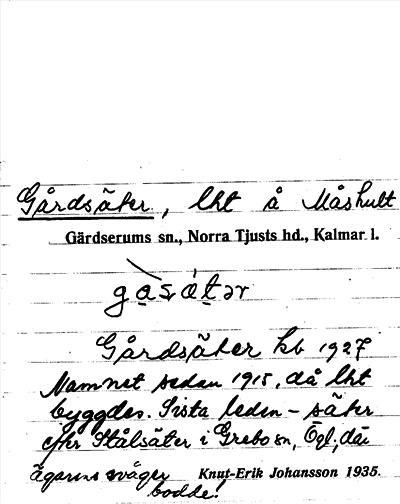 Gårdsäter, lht å Måshult
Gärdserums sn., Norra Tjusts hd., Kalmar l.
Gårdsäter kb 1927
Namnet sedan 1915, då lht
byggdes. Sista leden - säter
efter Stålsäter i Grebo sn, Ögl, där
ägarens svåger Knut-Erik Johansson 1935.
bodde.